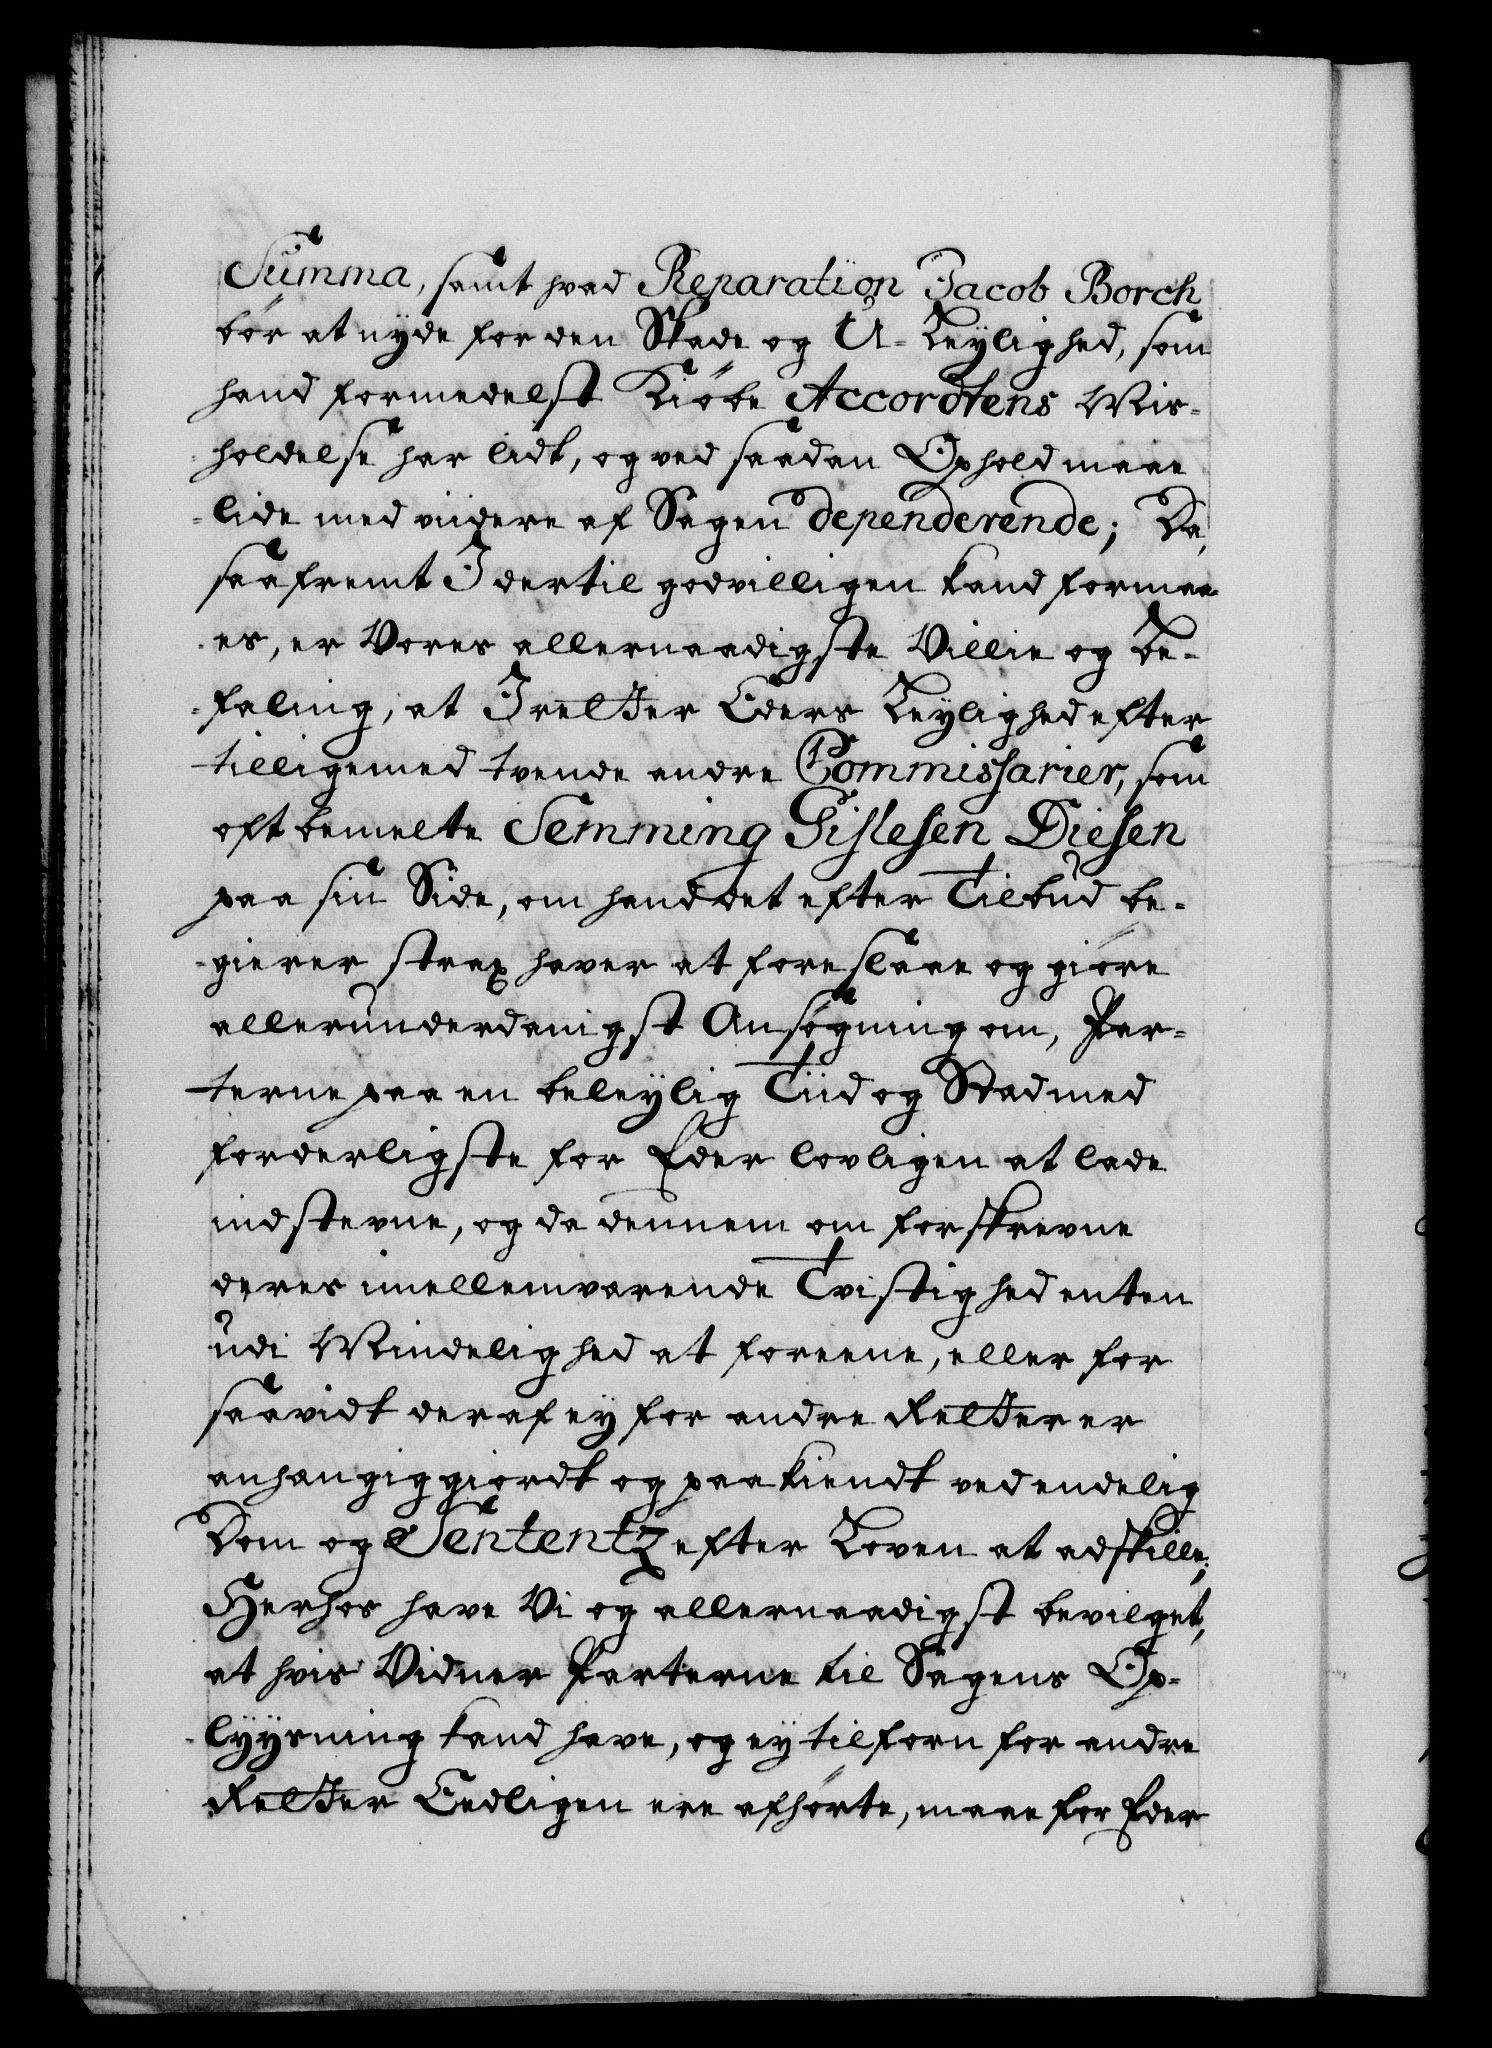 Summa, samt hvad Reparation Jacob Borch
bör at nyde for den Skade og U-Leylighed, som
hand formedelst Kiöbe Accordtens Mis-
holdelse har lidt, og ved saadan Ophold maae
lide med viidere af Sagen dependerende; Da,
saafremt I dertil godvilligen kand formaa-
es, er Vores allernaadigste Villie og Be-
faling, at I retter Eders Leylighed efter
tilligemed tvende andre Commissarier, som
oftbemelte Semming Gislesen Diesen
paa sin Side, om hand det efter Tilbud be-
gierer strax haver at foreslaae og giöre
allerunderdanigst Ansögning om, Par-
terne paa en beleylig Tiid og Stad med
forderligste for Eder lovligen at lade
indstevne, og da dennem om forskrevne
deres imellemværende Tvistighed enten
udi Mindelighed at foreene, eller for
saavidt deraf ey for andre Retter er
anhængiggiordt og paakiendt ved endelig
Dom og Sententz efter Loven at adskille;
Herhos have Vi og allernaadigst bevilget,
at hvis Vidner Parterne til Sagens Op-
lyysning kand have, og ey tilforn for andre
Retter Eedligen ere afhörte, maae for Eder